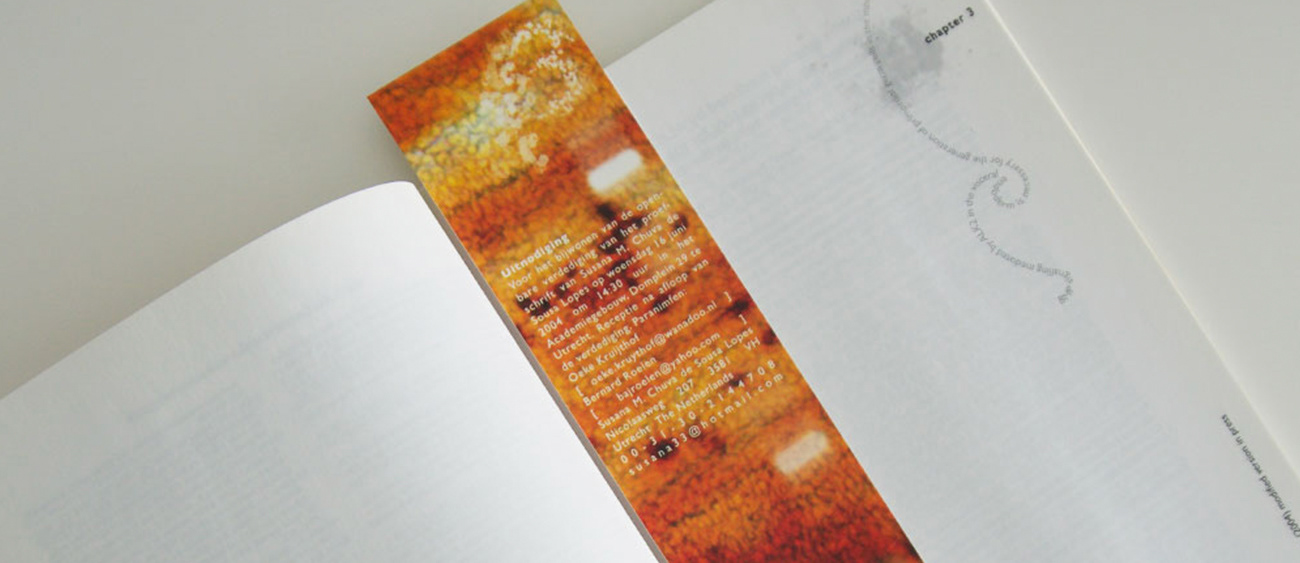 Uitnodiging
Voor het bijwonen van de open-
bare verdediging van het proef-
schrift van Susana M. Chuva de
Sousa Lopes op woensdag 16 juni
2004 om 14.30 uur in het
Academiegebouw, Domplein 29 te
Utrecht. Receptie na afloop van
de verdediging. Paranimfen:
Oeke Kruijthof
[ oeke.kruythof@wanadoo.nl ]
Bernard Roelen
[ bajroelen@yahoo.com ]
Susana M. Chuva de Sousa Lopes
Nicolaasweg 207 3581 VH
Utrecht The Netherlands
00-31-30-2144708
susana33@hotmail.com
chapter 3
necessary for the generation of primordial
signaling mediated by ALK2 in the visceral
(2004) modified version in press